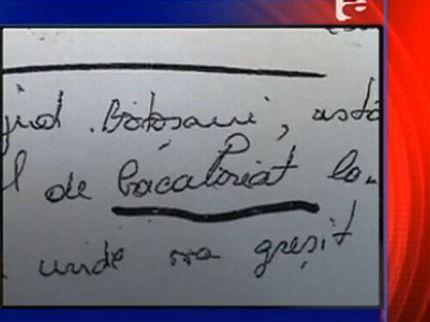 jud. Botosani, astă
l de bacaloriat la
unde sa greșit